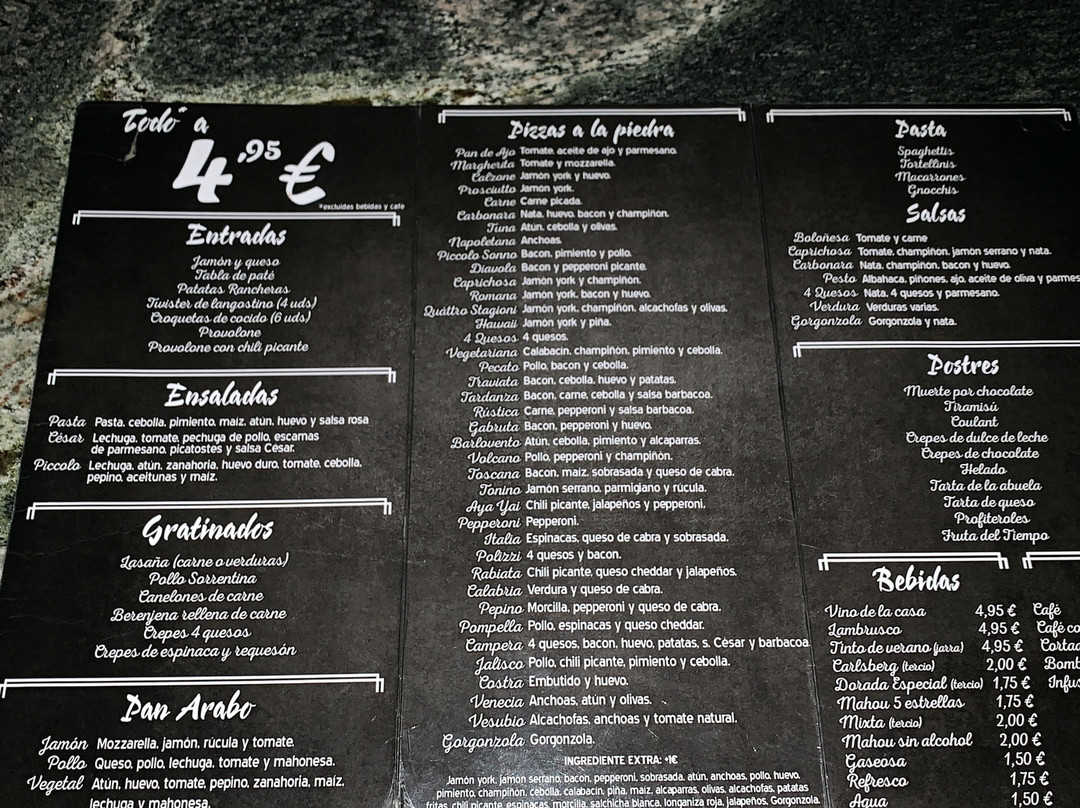 Todo* a
4,95 €
*excluidas bebidas y café
Entradas
Jamón y queso
Tabla de paté
Patatas Rancheras
Twister de langostino (4 uds)
Croquetas de cocido (6 uds)
Provolone
Provolone con chili picante
Ensaladas
Pasta Pasta, cebolla, pimiento, maíz, atún, huevo y salsa rosa
César Lechuga, tomate, pechuga de pollo, escamas
de parmesano, picatostes y salsa César.
Piccolo Lechuga, atún, zanahoria, huevo duro, tomate, cebolla,
pepino, aceitunas y maíz.
Gratinados
Lasaña (carne o verduras)
Pollo Sorrentina
Canelones de carne
Berenjena rellena de carne
Crepes 4 quesos
Crepes de espinaca y requesón
Pan Arabo
Jamón Mozzarella, jamón, rúcula y tomate.
Pollo Queso, pollo, lechuga, tomate y mahonesa.
Vegetal Atún, huevo, tomate, pepino, zanahoria, maíz,
lechuga y mahonesa.
Pizzas a la piedra
Pan de Ajo Tomate, aceite de ajo y parmesano.
Margherita Tomate y mozzarella.
Calzone Jamón york y huevo.
Prosciutto Jamón york.
Carne Carne picada.
Carbonara Nata, huevo, bacon y champiñón.
Tuna Atún, cebolla y olivas.
Napoletana Anchoas.
Piccolo Sonno Bacon, pimiento y pollo.
Diavola Bacon y pepperoni picante.
Caprichosa Jamón york y champiñón.
Romana Jamón york, bacon y huevo.
Quáttro Stagioni Jamón york, champiñón, alcachofas y olivas.
Hawaii Jamón york y piña.
4 Quesos 4 quesos.
Vegetariana Calabacín, champiñón, pimiento y cebolla.
Pecato Pollo, bacon y cebolla.
Traviata Bacon, cebolla, huevo y patatas.
Tardanza Bacon, carne, cebolla y salsa barbacoa.
Rústica Carne, pepperoni y salsa barbacoa.
Gabruta Bacon, pepperoni y huevo.
Barlovento Atún, cebolla, pimiento y alcaparras.
Volcano Pollo, pepperoni y champiñón.
Toscana Bacon, maíz, sobrasada y queso de cabra.
Tonino Jamón serrano, parmigiano y rúcula.
Aya Yai Chili picante, jalapeños y pepperoni.
Pepperoni Pepperoni.
Italia Espinacas, queso de cabra y sobrasada.
Polizzi 4 quesos y bacon.
Rabiata Chili picante, queso cheddar y jalapeños.
Calabria Verdura y queso de cabra.
Pepino Morcilla, pepperoni y queso de cabra.
Pompella Pollo, espinacas y queso cheddar.
Campera 4 quesos, bacon, huevo, patatas, s. César y barbacoa.
Jalisco Pollo, chili picante, pimiento y cebolla.
Costra Embutido y huevo.
Venecia Anchoas, atún y olivas.
Vesubio Alcachofas, anchoas y tomate natural.
Gorgonzola Gorgonzola.
INGREDIENTE EXTRA: +1€
Jamón york, jamón serrano, bacon, pepperoni, sobrasada, atún, anchoas, pollo, huevo,
pimiento, champiñón, cebolla, calabacín, piña, maíz, alcaparras, olivas, alcachofas, patatas
fritas, chili picante, espinacas, morcilla, salchicha blanca, longaniza roja, jalapeños, Gorgonzola.
Pasta
Spaghettis
Tortellinis
Macarrones
Gnocchis
Salsas
Boloñesa Tomate y carne
Caprichosa Tomate, champiñón, jamón serrano y nata.
Carbonara Nata, champiñón, bacon y huevo.
Pesto Albahaca, piñones, ajo, aceite de oliva y parmes
4 Quesos Nata, 4 quesos y parmesano.
Verdura Verduras varias.
Gorgonzola Gorgonzola y nata.
Postres
Muerte por chocolate
Tiramisú
Coulant
Crepes de dulce de leche
Crepes de chocolate
Helado
Tarta de la abuela
Tarta de queso
Profiteroles
Fruta del Tiempo
Bebidas
Vino de la casa 4,95 €
Lambrusco 4,95 €
Tinto de verano (jarra) 4,95 €
Carlsberg (tercio) 2,00 €
Dorada Especial (tercio) 1,75 €
Mahou 5 estrellas 1,75 €
Mixta (tercio) 2,00 €
Mahou sin alcohol 2,00 €
Gaseosa 1,50 €
Refresco 1,75 €
Agua 1,50 €
Café
Café co
Cortad
Bomb
Infus